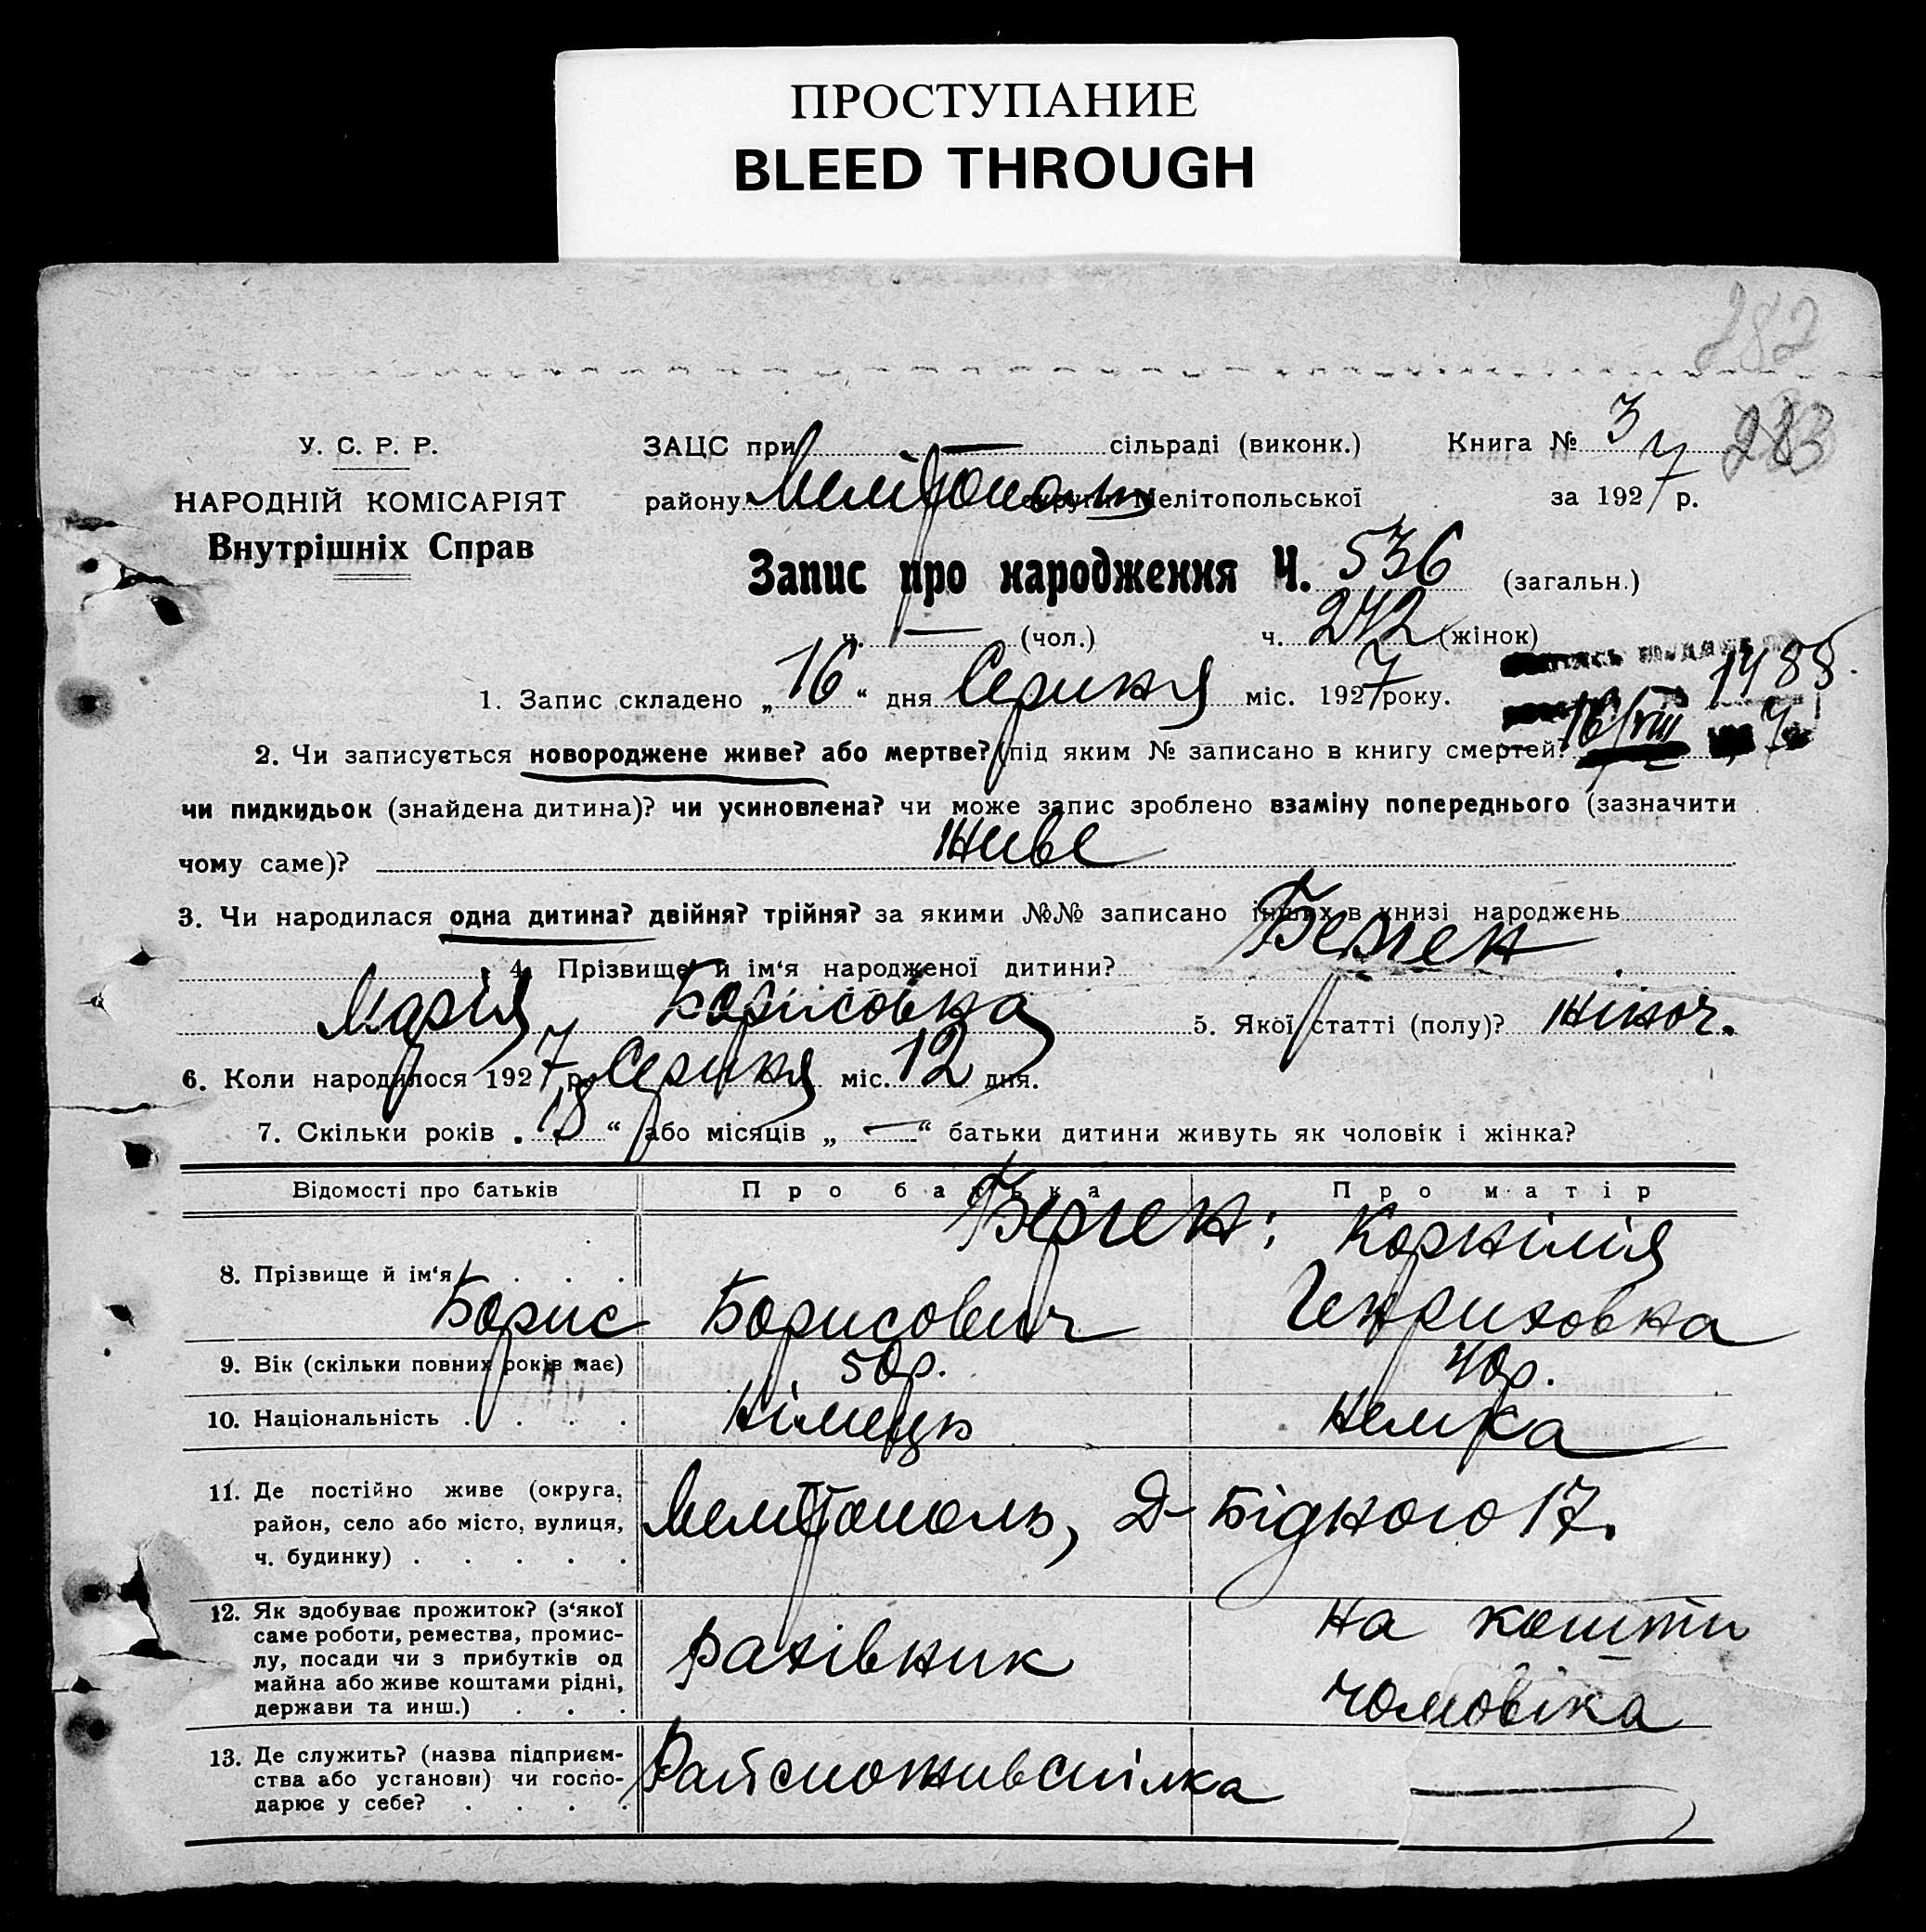 ПРОСТУПАНИЕ
BLEED THROUGH
282
283
У. С. Р. Р.
НАРОДНІЙ КОМІСАРІЯТ
Внутрішніх Справ
ЗАЦС при — сільраді (виконк.)
району Мелітополь округи Мелітопольської
Книга № 3
за 1927 р.
Запис про народження Ч. 536 (загальн.)
ч. — (чол.) ч. 272 (жінок)
1488.
1. Запис складено „16“ дня Серпня міс. 1927 року.
16/VIII 7
2. Чи записується новороджене живе? або мертве? (під яким № записано в книгу смертей?
чи пидкидьок (знайдена дитина)? чи усиновлена? чи може запис зроблено взаміну попереднього (зазначити
чому саме)? Живе
3. Чи народилася одна дитина? двійня? трійня? за якими №№ записано інших в книзі народжень
4. Прізвище й ім‘я народженої дитини? Берген
Марія Борисовна 5. Якої статті (полу)? жіноч.
6. Коли народилося 1927 р. Серпня міс. 12 дня.
7. Скільки років „18“ або місяців „—“ батьки дитини живуть як чоловік і жінка?
Відомості про батьків Про батька Про матір
8. Прізвище й ім‘я . . . Берген: Корнілія
Борис Борисович Генриховна
9. Вік (скільки повних років має) 50р. 40р.
10. Національність . . . . Німець Немка
11. Де постійно живе (округа,
район, село або місто, вулиця,
ч. будинку) . . . . .
Мелітополь, Д-Бідного 17.
12. Як здобуває прожиток? (з‘якої
саме роботи, ремества, промис-
лу, посади чи з прибутків од
майна або живе коштами рідні,
держави та инш.) . . .
рахівник
на кошти
чоловіка
13. Де служить? (назва підприєм-
ства або установи) чи госпо-
дарює у себе? . . . .
Райспоживспілка —